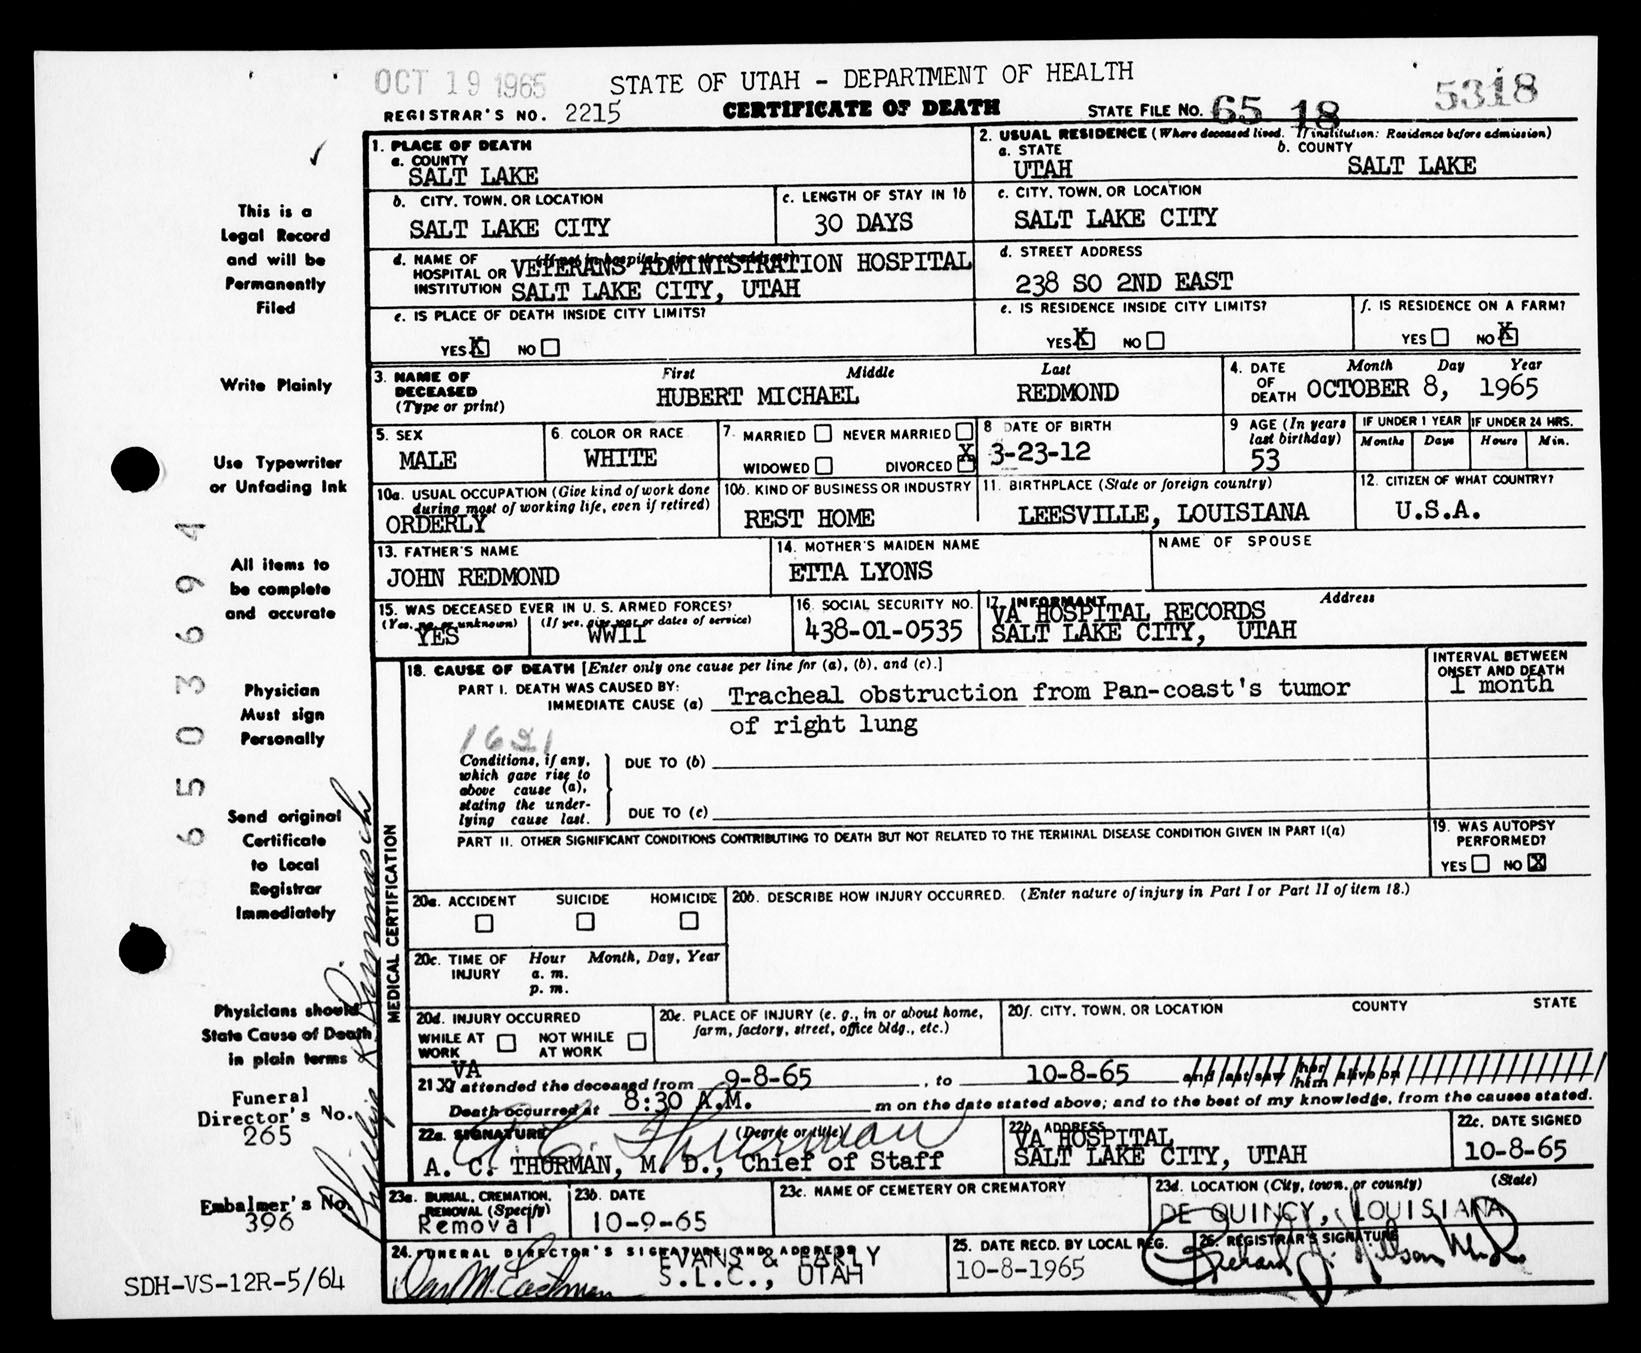 OCT 19 1965
STATE OF UTAH - DEPARTMENT OF HEALTH
5318
REGISTRAR'S NO. 2215
CERTIFICATE OF DEATH
STATE FILE NO. 65 18
1. PLACE OF DEATH
a. COUNTY
SALT LAKE
2. USUAL RESIDENCE (Where deceased lived. If institution: Residence before admission)
a. STATE
UTAH
b. COUNTY
SALT LAKE
b. CITY, TOWN, OR LOCATION
SALT LAKE CITY
c. LENGTH OF STAY IN 1b
30 DAYS
c. CITY, TOWN, OR LOCATION
SALT LAKE CITY
d. NAME OF HOSPITAL OR INSTITUTION
(If not in hospital, give street address)
VETERANS ADMINISTRATION HOSPITAL
SALT LAKE CITY, UTAH
d. STREET ADDRESS
238 SO 2ND EAST
e. IS PLACE OF DEATH INSIDE CITY LIMITS?
YES X NO
e. IS RESIDENCE INSIDE CITY LIMITS?
YES X NO
f. IS RESIDENCE ON A FARM?
YES NO X
3. NAME OF DECEASED
(Type or print)
First Middle Last
HUBERT MICHAEL REDMOND
4. DATE OF DEATH
Month Day Year
OCTOBER 8, 1965
5. SEX
MALE
6. COLOR OR RACE
WHITE
7. MARRIED NEVER MARRIED
WIDOWED DIVORCED X
8 DATE OF BIRTH
3-23-12
9 AGE (In years last birthday)
53
IF UNDER 1 YEAR
Months Days
IF UNDER 24 HRS.
Hours Min.
10a. USUAL OCCUPATION (Give kind of work done
during most of working life, even if retired)
ORDERLY
10b. KIND OF BUSINESS OR INDUSTRY
REST HOME
11. BIRTHPLACE (State or foreign country)
LEESVILLE, LOUISIANA
12. CITIZEN OF WHAT COUNTRY?
U.S.A.
13. FATHER'S NAME
JOHN REDMOND
14. MOTHER'S MAIDEN NAME
ETTA LYONS
NAME OF SPOUSE
15. WAS DECEASED EVER IN U. S. ARMED FORCES?
(Yes, no, or unknown) (If yes, give war or dates of service)
YES WWII
16. SOCIAL SECURITY NO.
438-01-0535
17. INFORMANT Address
VA HOSPITAL RECORDS
SALT LAKE CITY, UTAH
MEDICAL CERTIFICATION
18. CAUSE OF DEATH [Enter only one cause per line for (a), (b), and (c).]
INTERVAL BETWEEN
ONSET AND DEATH
PART I. DEATH WAS CAUSED BY:
IMMEDIATE CAUSE (a) Tracheal obstruction from Pan-coast's tumor
1 month
of right lung
1621
Conditions, if any,
which gave rise to
above cause (a),
stating the under-
lying cause last.
DUE TO (b)
DUE TO (c)
PART II. OTHER SIGNIFICANT CONDITIONS CONTRIBUTING TO DEATH BUT NOT RELATED TO THE TERMINAL DISEASE CONDITION GIVEN IN PART I(a)
19. WAS AUTOPSY
PERFORMED?
YES NO X
20a. ACCIDENT SUICIDE HOMICIDE
20b. DESCRIBE HOW INJURY OCCURRED. (Enter nature of injury in Part I or Part II of item 18.)
20c. TIME OF INJURY
Hour Month, Day, Year
a. m.
p. m.
20d. INJURY OCCURRED
WHILE AT WORK
NOT WHILE AT WORK
20e. PLACE OF INJURY (e. g., in or about home,
farm, factory, street, office bldg., etc.)
20f. CITY, TOWN, OR LOCATION COUNTY STATE
VA
21 X I attended the deceased from 9-8-65, to 10-8-65 and last saw her him alive on
Death occurred at 8:30 A.M. m on the date stated above; and to the best of my knowledge, from the causes stated.
22a. SIGNATURE (Degree or title)
A. C. Thurman
A. C. THURMAN, M. D., Chief of Staff
22b. ADDRESS
VA HOSPITAL
SALT LAKE CITY, UTAH
22c. DATE SIGNED
10-8-65
23a. BURIAL, CREMATION,
REMOVAL (Specify)
Removal
23b. DATE
10-9-65
23c. NAME OF CEMETERY OR CREMATORY
23d. LOCATION (City, town, or county) (State)
DE QUINCY, LOUISIANA
24. FUNERAL DIRECTOR'S SIGNATURE AND ADDRESS
EVANS & EARLY
S.L.C., UTAH
25. DATE RECD. BY LOCAL REG.
10-8-1965
26. REGISTRAR'S SIGNATURE
This is a
Legal Record
and will be
Permanently
Filed
Write Plainly
Use Typewriter
or Unfading Ink
All items to
be complete
and accurate
Physician
Must sign
Personally
Send original
Certificate
to Local
Registrar
Immediately
Physicians should
State Cause of Death
in plain terms
Funeral
Director's No.
265
Embalmer's No.
396
SDH-VS-12R-5/64
6503694